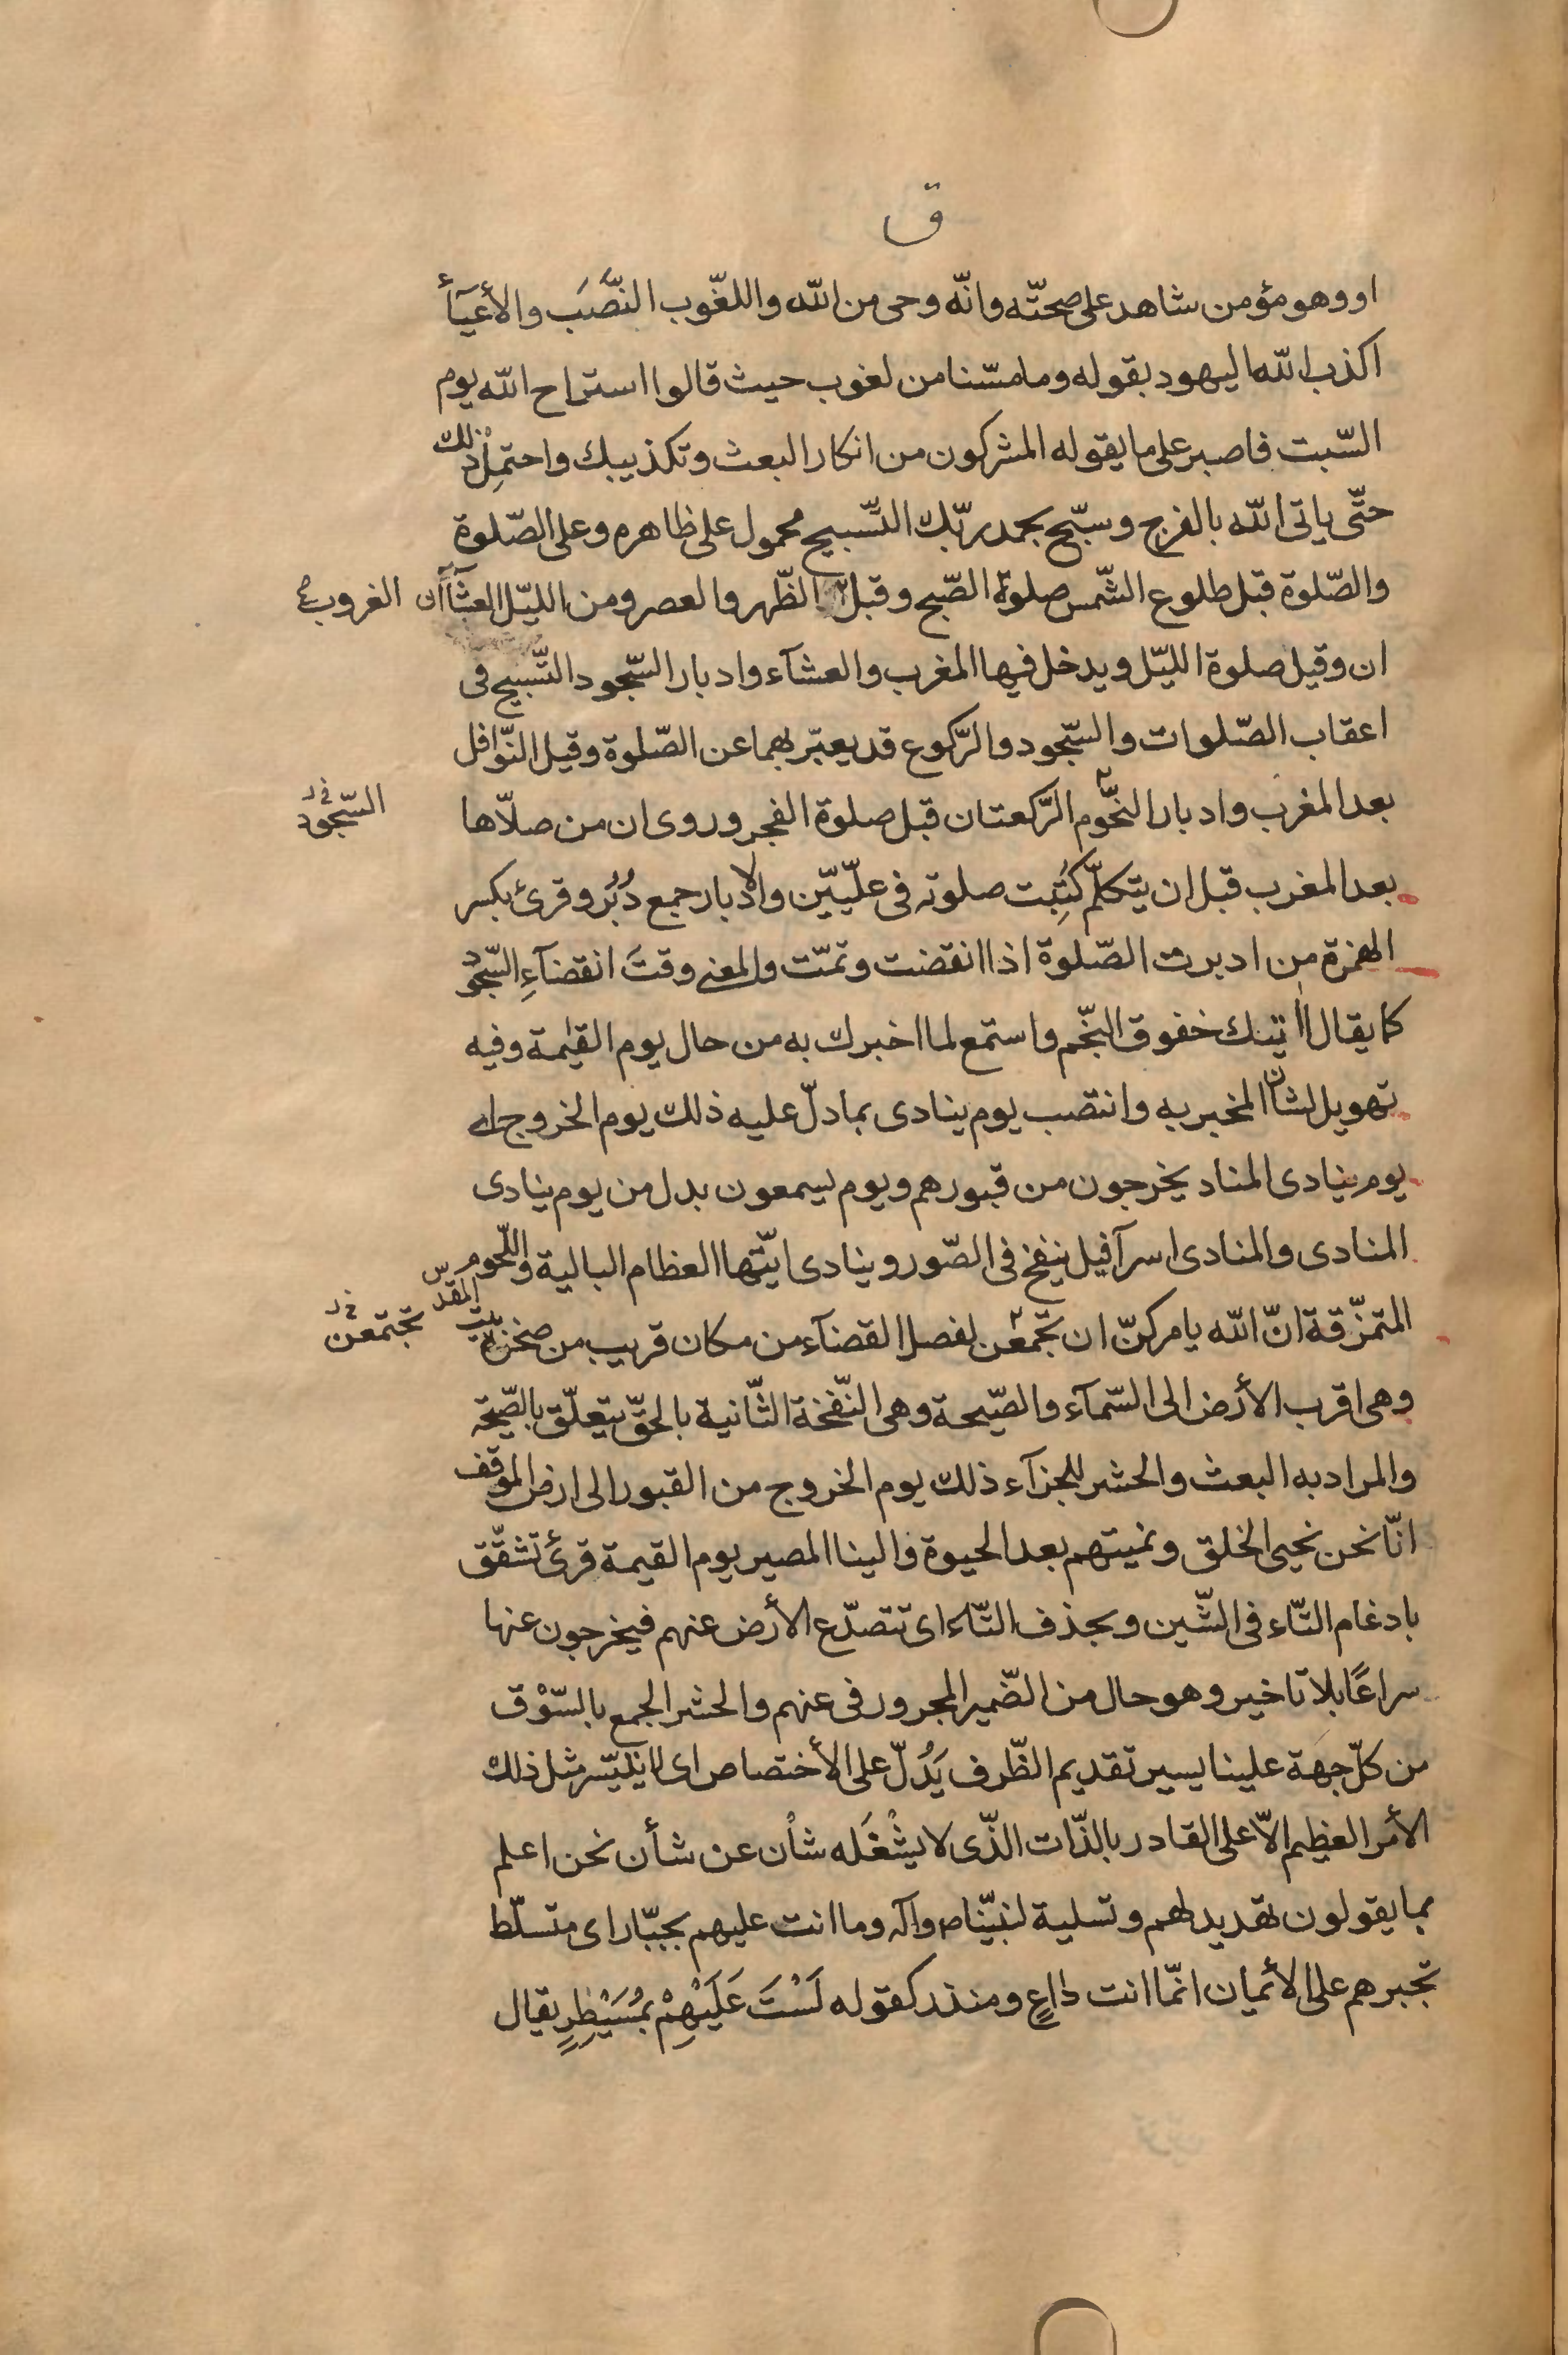 ق
او وهو مؤمن شاهد على صحّته وانّه وحى من الله واللغّوب النَّصَب والأعيَآء
اكذب الله اليهود بقوله وما مسّنا من لغوب حيث قالوا استراح الله يوم
السّبت فاصبر على ما يقوله المشركون من انكار البعث وتكذيبك واحتمِلْ ذلك
حتّى ياتى الله بالفرج وسبّح بحمد ربّك التّسبيح محمول على ظاهره وعلى الصّلوة
والصّلوة قبل طلوع الشّمس صلوة الصّبح وقبل الظّهر والعصر ومن الليّل العشآآن
الغروب
ان وقيل صلوة الليّل ويدخل فيها المغرب والعشآء وادبار السّجود التّسبيح فى
اعقاب الصّلوات والسّجود والرّكوع قد يعبّر بهما عن الصّلوة وقيل النّوافل
بعد المغرب وادبار النجّوم الرّكعتان قبل صلوة الفجر وروى ان من صلاّها
السّجود
بعد المغرب قبل ان يتكلّم كُتِبت صلوته فى علّيّين والادبار جمع دُبُر وقرئ بكسر
الهمزة من ادبرت الصّلوة اذا انقضت وتمّت والمعنى وقتَ انقضآءِ السّجود
كما يقال اتيتك خفوق النّجم واستمع لما اخبرك به من حال يوم القيٰمة وفيه
تهويل لشان المخبر به وانتصب يوم ينادى بما دلّ عليه ذلك يوم الخروج اى
يوم ينادى المناد يخرجون من قبورهم ويوم يسمعون بدل من يوم ينادى
المنادى والمنادى اسرآفيل ينفخ فى الصّور وينادى ايّتها العظام البالية واللّحوم
المتمزّقة انّ الله يامركنّ ان تجّمعن لفصل القضآء من مكان قريب من صخرة بيت المقدس
تجتمعن
وهى اقرب الأرض الى السّمآء والصّيحة وهى النّفخة الثّانية بالحقّ يتعلّق بالصّيحة
والمراد به البعث والحشر للجزآء ذلك يوم الخروج من القبور الى ارض الموقف
انّا نحن نحيى الخلق ونميتهم بعد الحيوة والينا المصير يوم القيمة قرئ تشقّق
بادغام التّاء فى الشّين وبحذف التّاء اى تتصدّع الأرض عنهم فيخرجون عنها
سراعًا بلا تاخير وهو حال من الضّمير المجرور فى عنهم والحشر الجمع بالسّوْق
من كلّ جهة علينا يسير تقديم الظّرف يَدُلّ على الأختصاص اى لا يتيسّر مثل ذلك
الأمر العظيم الاّ على القادر بالذّات الذّى لا يشْغَله شاْن عن شأن نحن اعلم
بما يقولون تهديد لهم وتسلية لنبيّنا ص وآله وما انت عليهم بجبّار اى متسلّط
تجبرهم على الأيمان انّما انت داعٍ ومنذر كقوله لَسْتَ عَلَيْهِمْ بمُسَيْطِرٍ يقال